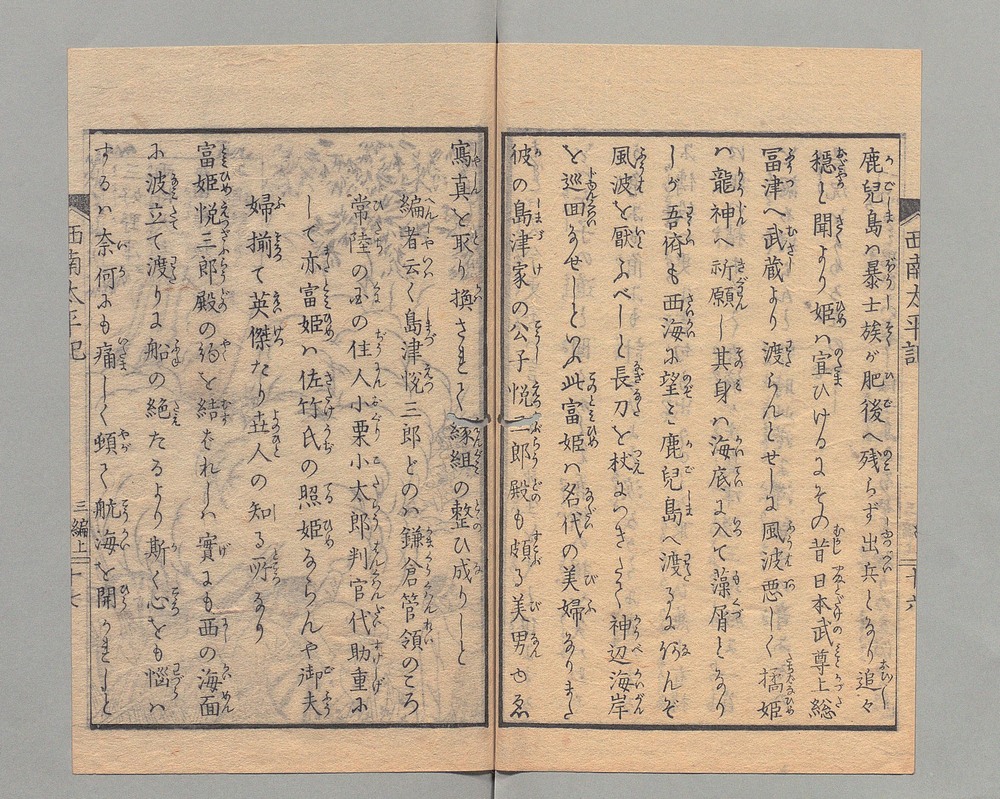 鹿兒島ハ暴士族が肥後へ残らず出兵となり追々
穏と聞より姫ハ宜ひけるにその昔日本武尊上総
冨津へ武蔵より渡らんとせしに風波悪しく橘姫
ハ龍神へ祈願し其身ハ海底に入て藻屑となり
しが吾儕も西海に望ミ鹿兒島へ渡るに何んぞ
風波を厭ふべしと長刀を杖につきたゝく神辺海岸
を巡回なせしといふ此富姫ハ名代の美婦なりまた
彼の島津家の公子悦三郎殿も頗る美男也ゑ
寫真を取り換されて縁組の整ひ成りしと
編者云く島津悦三郎とのハ鎌倉管領のころ
常陸の国の住人小栗小太郎判官代助重に
して亦富姫ハ佐竹氏の照姫ならんや御夫
婦揃て英傑たり世人の知る所なり
富姫悦三郎殿の約を結ばれしハ實にも西の海面
に波立て渡りに船の絶たるより斯く心をも惱ハ
するハ奈何にも痛しく頓て航海を開かましと
西南太平記
三編上
十六
西南太平記
三編上
十七